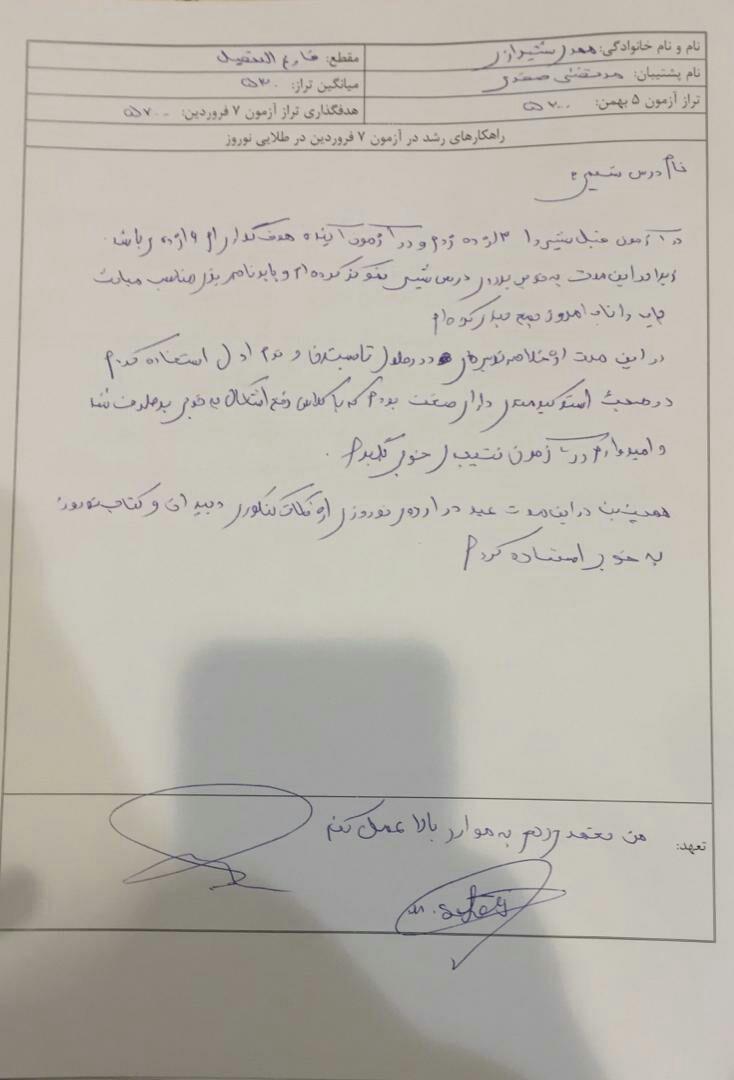 نام و نام خانوادگی: مهدی شیرازی
مقطع: فارغ التحصیل
نام پشتیبان: مرتضی صفدری
میانگین تراز: ۵۳۰۰
تراز آزمون ۵ بهمن: ۵۲۰۰
هدفگذاری تراز آزمون ۷ فروردین: ۵۷۰۰
راهکارهای رشد در آزمون ۷ فروردین در طلایی نوروز
نام درس شیمی:
در آزمون قبل شیمی را ۳ از ده زدم و در آزمون آینده هدف گذاری ام ۶ از ده می باشد.
زیرا در این مدت به خوبی بر روی درس شیمی تمرکز کرده ام و با برنامه ریزی مناسب مباحث
را تا به امروز جمع بندی کرده ام
در این مدت از خلاصه نویس های دور دهم و استفاده کردم
در مبحث استوکیومتری دارای ضعف بودم که با کلاس رفع اشکال به خوبی برطرف شد
و امیدوارم در آزمون نتیجه ی خوبی بگیرم.
همچنین در این مدت عید در اردوی نوروزی از نکات کنکوری دبیران و کتاب نوروز
به خوبی استفاده کردم
تعهد: من تعهد می دهم به موارد بالا عمل کنم